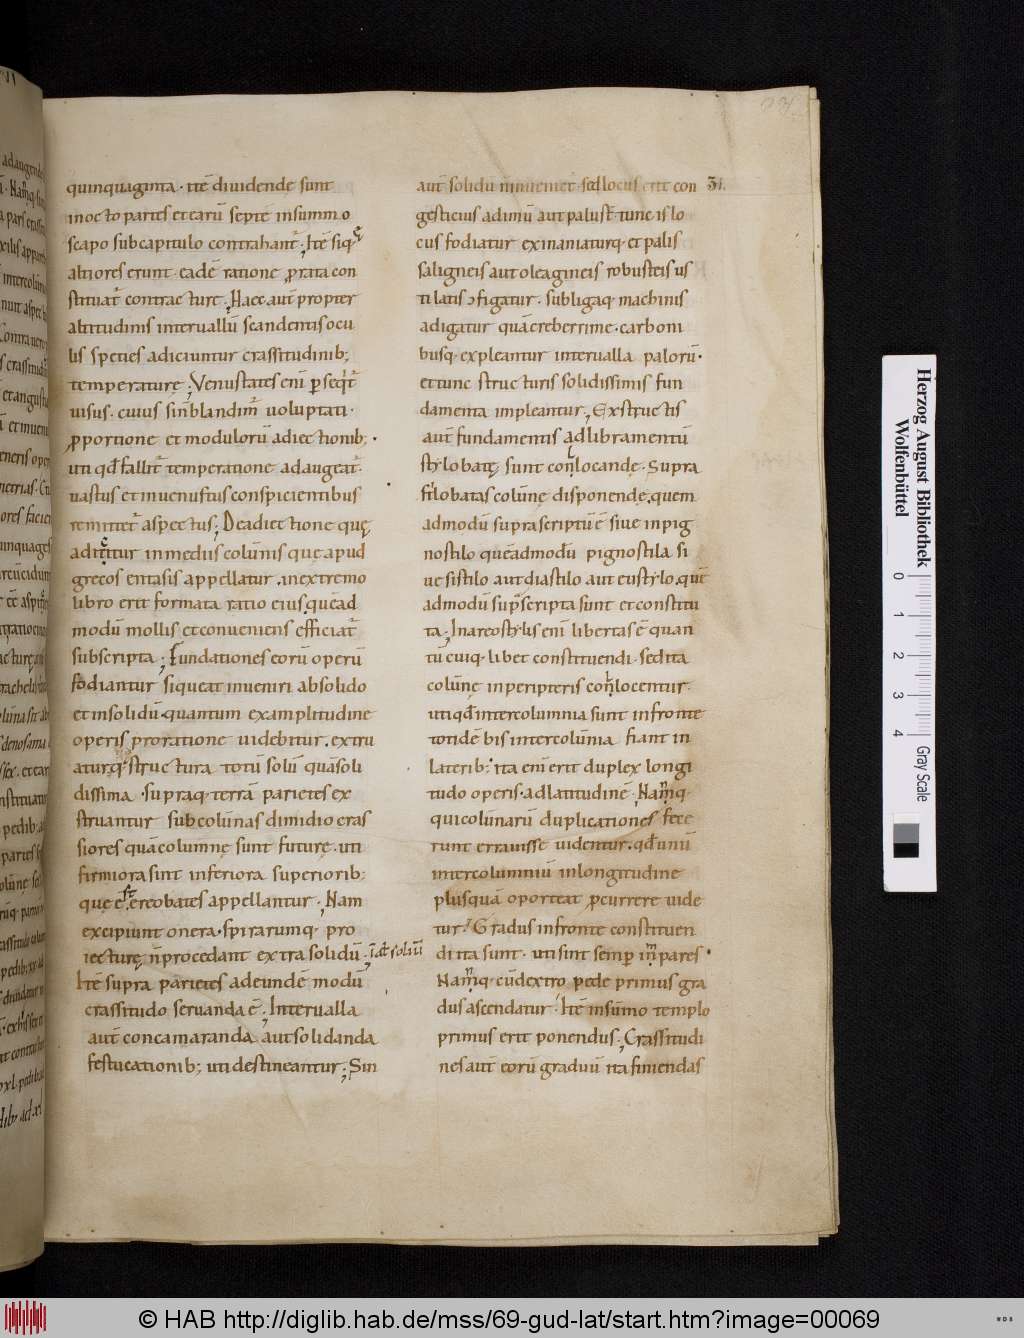 quinquaginta · itē diuidendę sunt
inocto partes et earū septē insummo
scapo subcapitulo contrahant᷑ ; Itē siq̨
altiores erunt · eadē ratione ꝓrata con
stituat᷑ contracturę ; Haec aut̄ propter
altitudinis interuallū scandentis ocu
lis species adiciuntur crassitudinib;
temperaturę ; Venustates enī ꝑseqt᷑
uisus · cuius sin̄ blandim᷑ uoluptati ·
ꝓportione et modulorū adiectionib; ·
uti qđ fallit᷑ temperatione adaugeat᷑ ·
uastus et inuenustus conspicientibus
remittet᷑ aspectus ; Deadiectione quę
adicitur inmediis colūnis que apud
grecos entasis appellatur . inextremo
libro erit formata ratio eius . quēad
modū mollis et conueniens efficiat᷑
subscripta ; Fundationes eorū operū
fodiantur siqueat inueniri absolido
et insolidū · quantum examplitudine
operis proratione uidebitur . extru
aturq; structura totū solū quāsoli
dissima · supraq; terrā parietes ex
struantur subcolūnas dimidio cras
siores quācolumnę sunt futurę . uti
firmiora sint inferiora superiorib;
que ste̦reobates appellantur · Nam
excipiunt onera · spirarumq; pro
iecturę n̄ procedant extra solidū ;
Itē supra parietes adeundē modū
crassitudo seruanda ē ; Interualla
aut̄ concamaranda aut solidanda
festucationib; uti destineantur ; Sin
aut̄ solidū n̄ inueniet · sed locus erit con 31.
gesticius adimū aut palust᷑ tunc is lo
cus fodiatur exinaniaturq; et palis
saligneis aut oleagineis robusteis us
tilatis ɔfigatur · subligaq; machinis
adigatur quācreberrime · carboni
busq; expleantur interualla palorū ·
et tunc structuris solidissimis fun
damenta impleantur ; Exstructis
aut̄ fundamentis ad libramentū
stylobatę sunt conlocandę · Supra
stilobatas colūnę disponendę, quem
admodū suprascriptū ē siue in pig
nostilo quēadmodū pignostila si
ue sistilo aut diastilo aut eustylo, quē
admodū supͣscripta sunt et constitu
ta ; In areostylis enī libertas ē quan
tū cuiq; libet constituendi · sed ita
colūnę in peripteris conlocentur ·
uti qđ intercolumnia sunt infronte
totidē bis intercolūnia fiant in
laterib; ita enī erit duplex longi
tudo operis · adlatitudinē ; Nāq;
qui colūnarū duplicationes fece
runt errauisse uidentur . qđ unū
intercolumniū inlongitudine
plusquā oporteat ꝓcurrere uide
tur ; Gradus infronte constituen
di ita sunt · uti sint semꝑ inpares ·
Nāq; cūdextro pede primus gra
dus ascendatur ; Itē insūmo templo
primus erit ponendus ; Crassitudi
nes aut̄ eorū graduū ita finiendas
Herzog August Bibliothek
Wolfenbüttel
0 1 2 3 4
Gray Scale
© HAB http://diglib.hab.de/mss/69-gud-lat/start.htm?image=00069